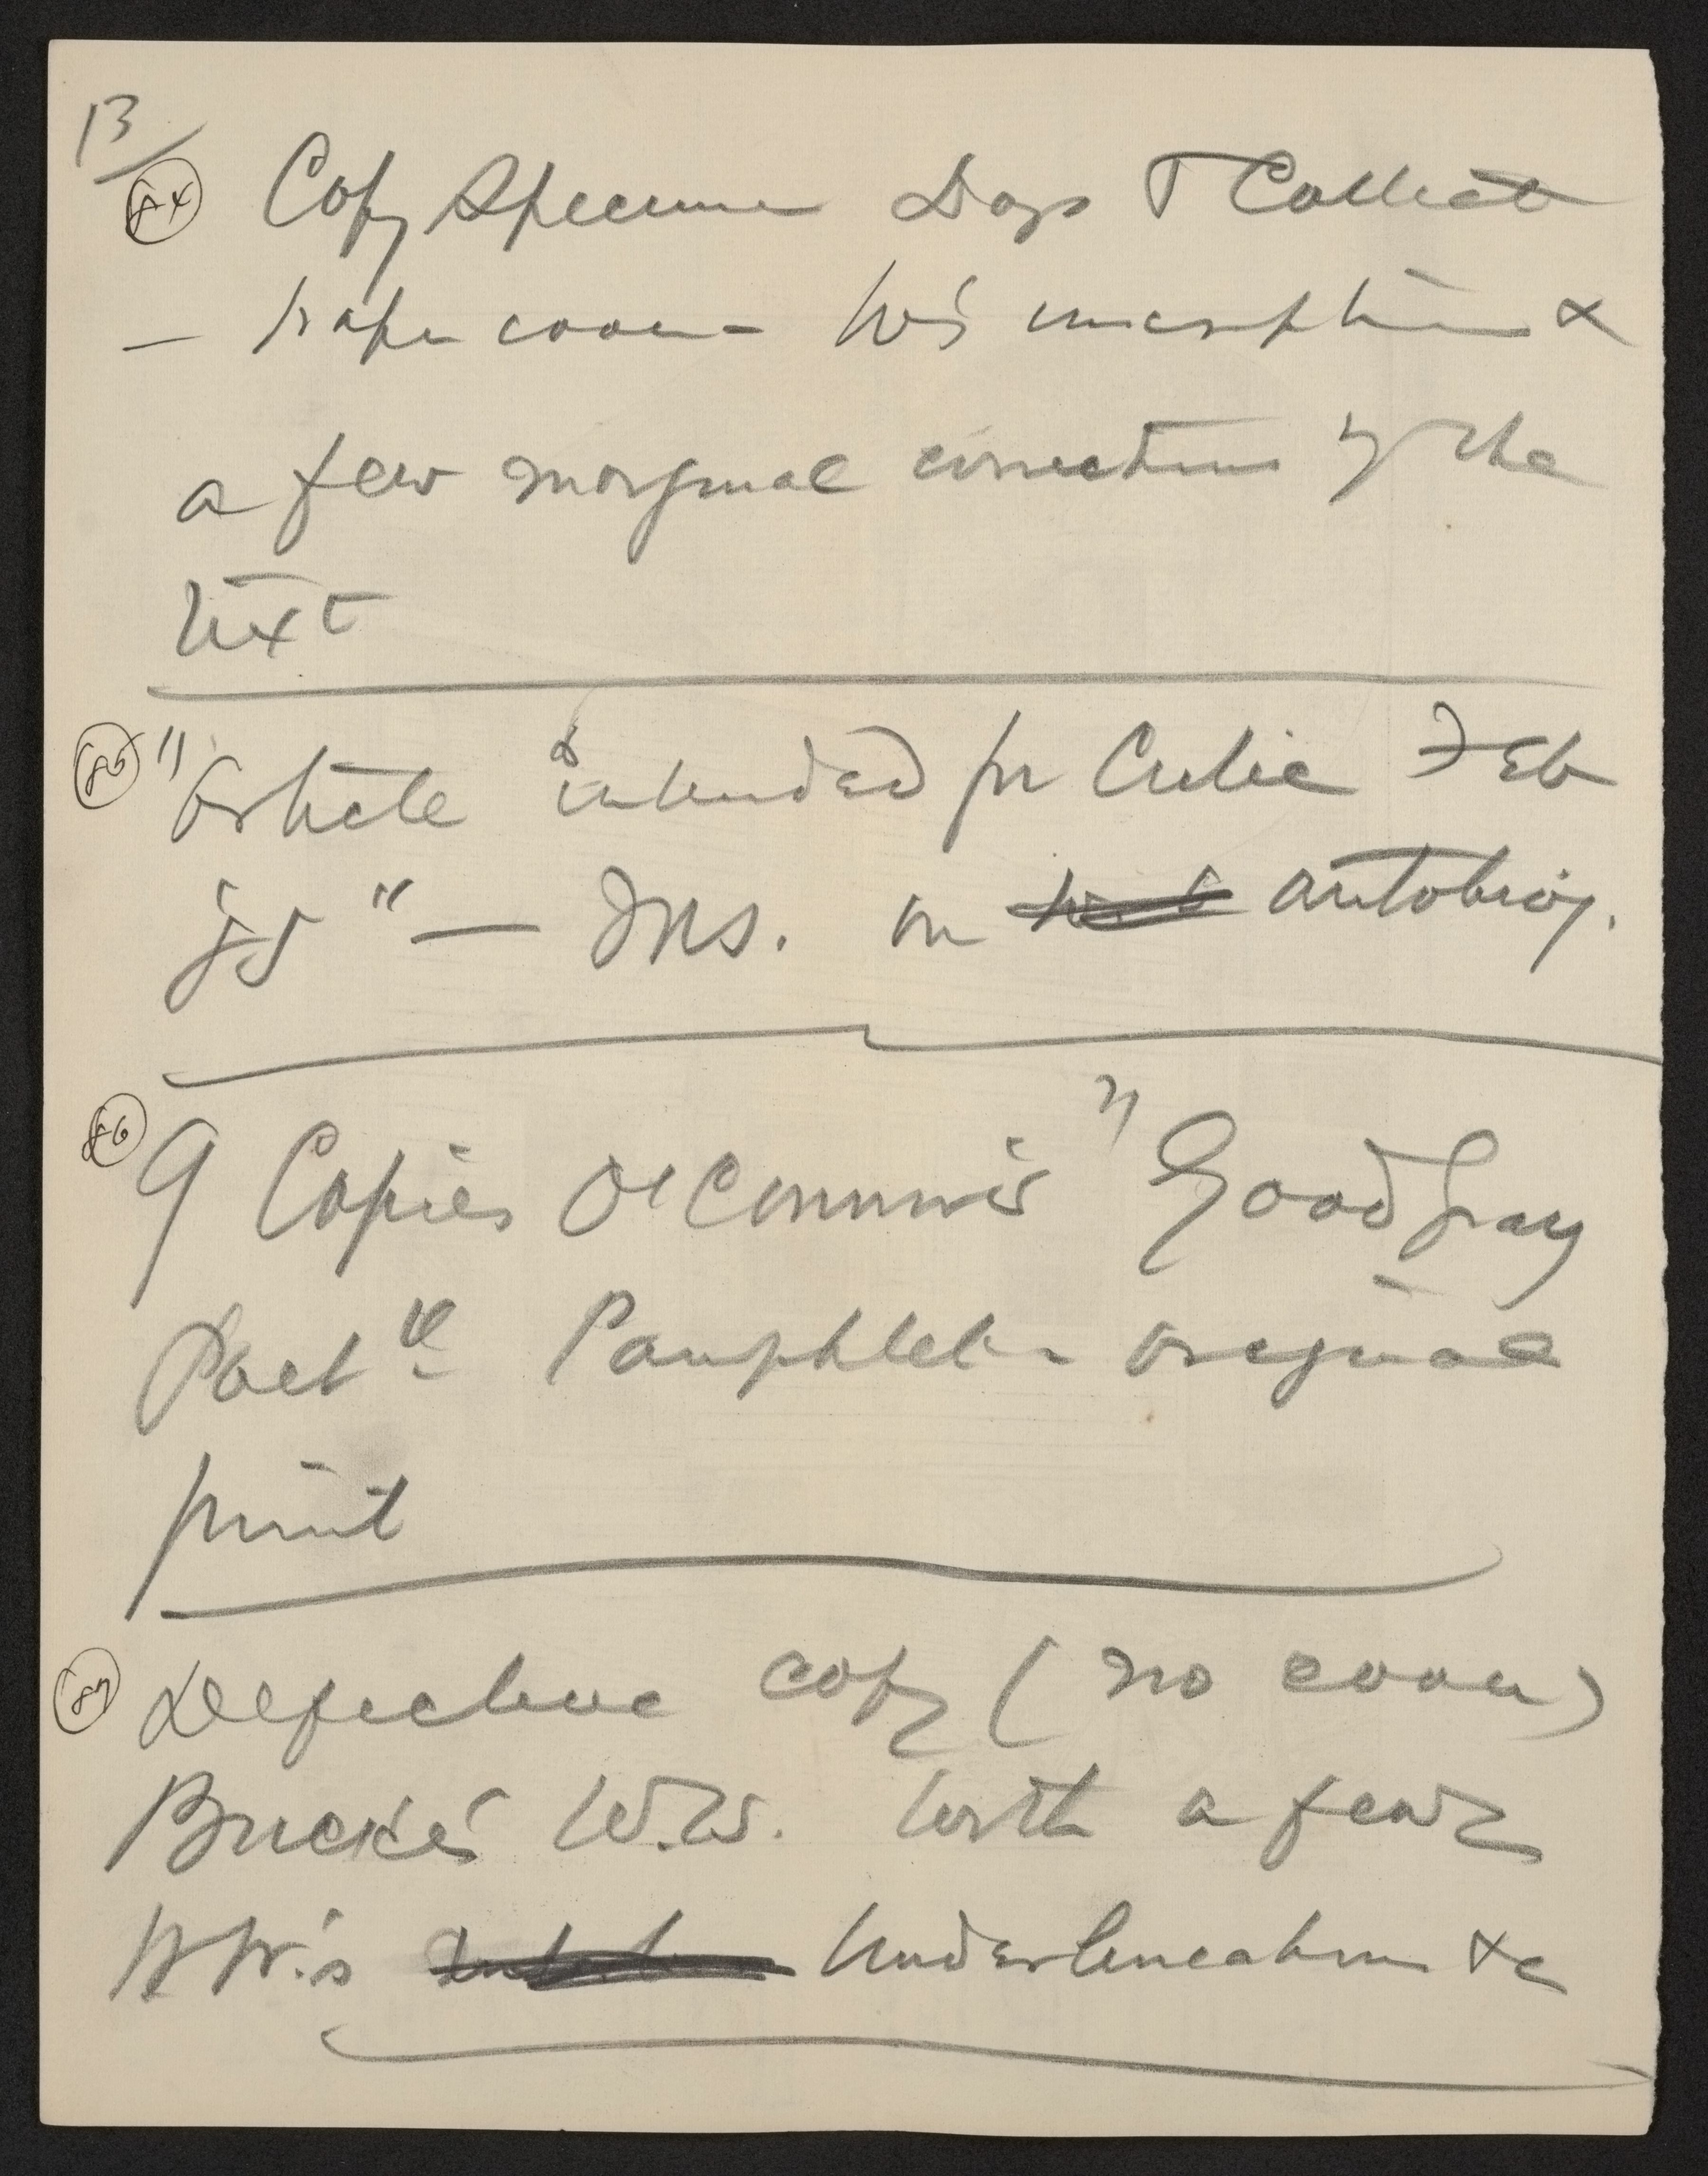 13/
84 Copy Specimen Days & Collect
— paper cover – W's inscription &
a few marginal corrections of the
text
85 "Article intended for Critic Feb
'85" — MS. on autobiog.
86 9 Copies O'Connor's "Good Gray
Poet" Pamphlet – original
print
87 Defective copy (no cover)
Bucke's W.W. with a few
WW.'s Underlineations &c